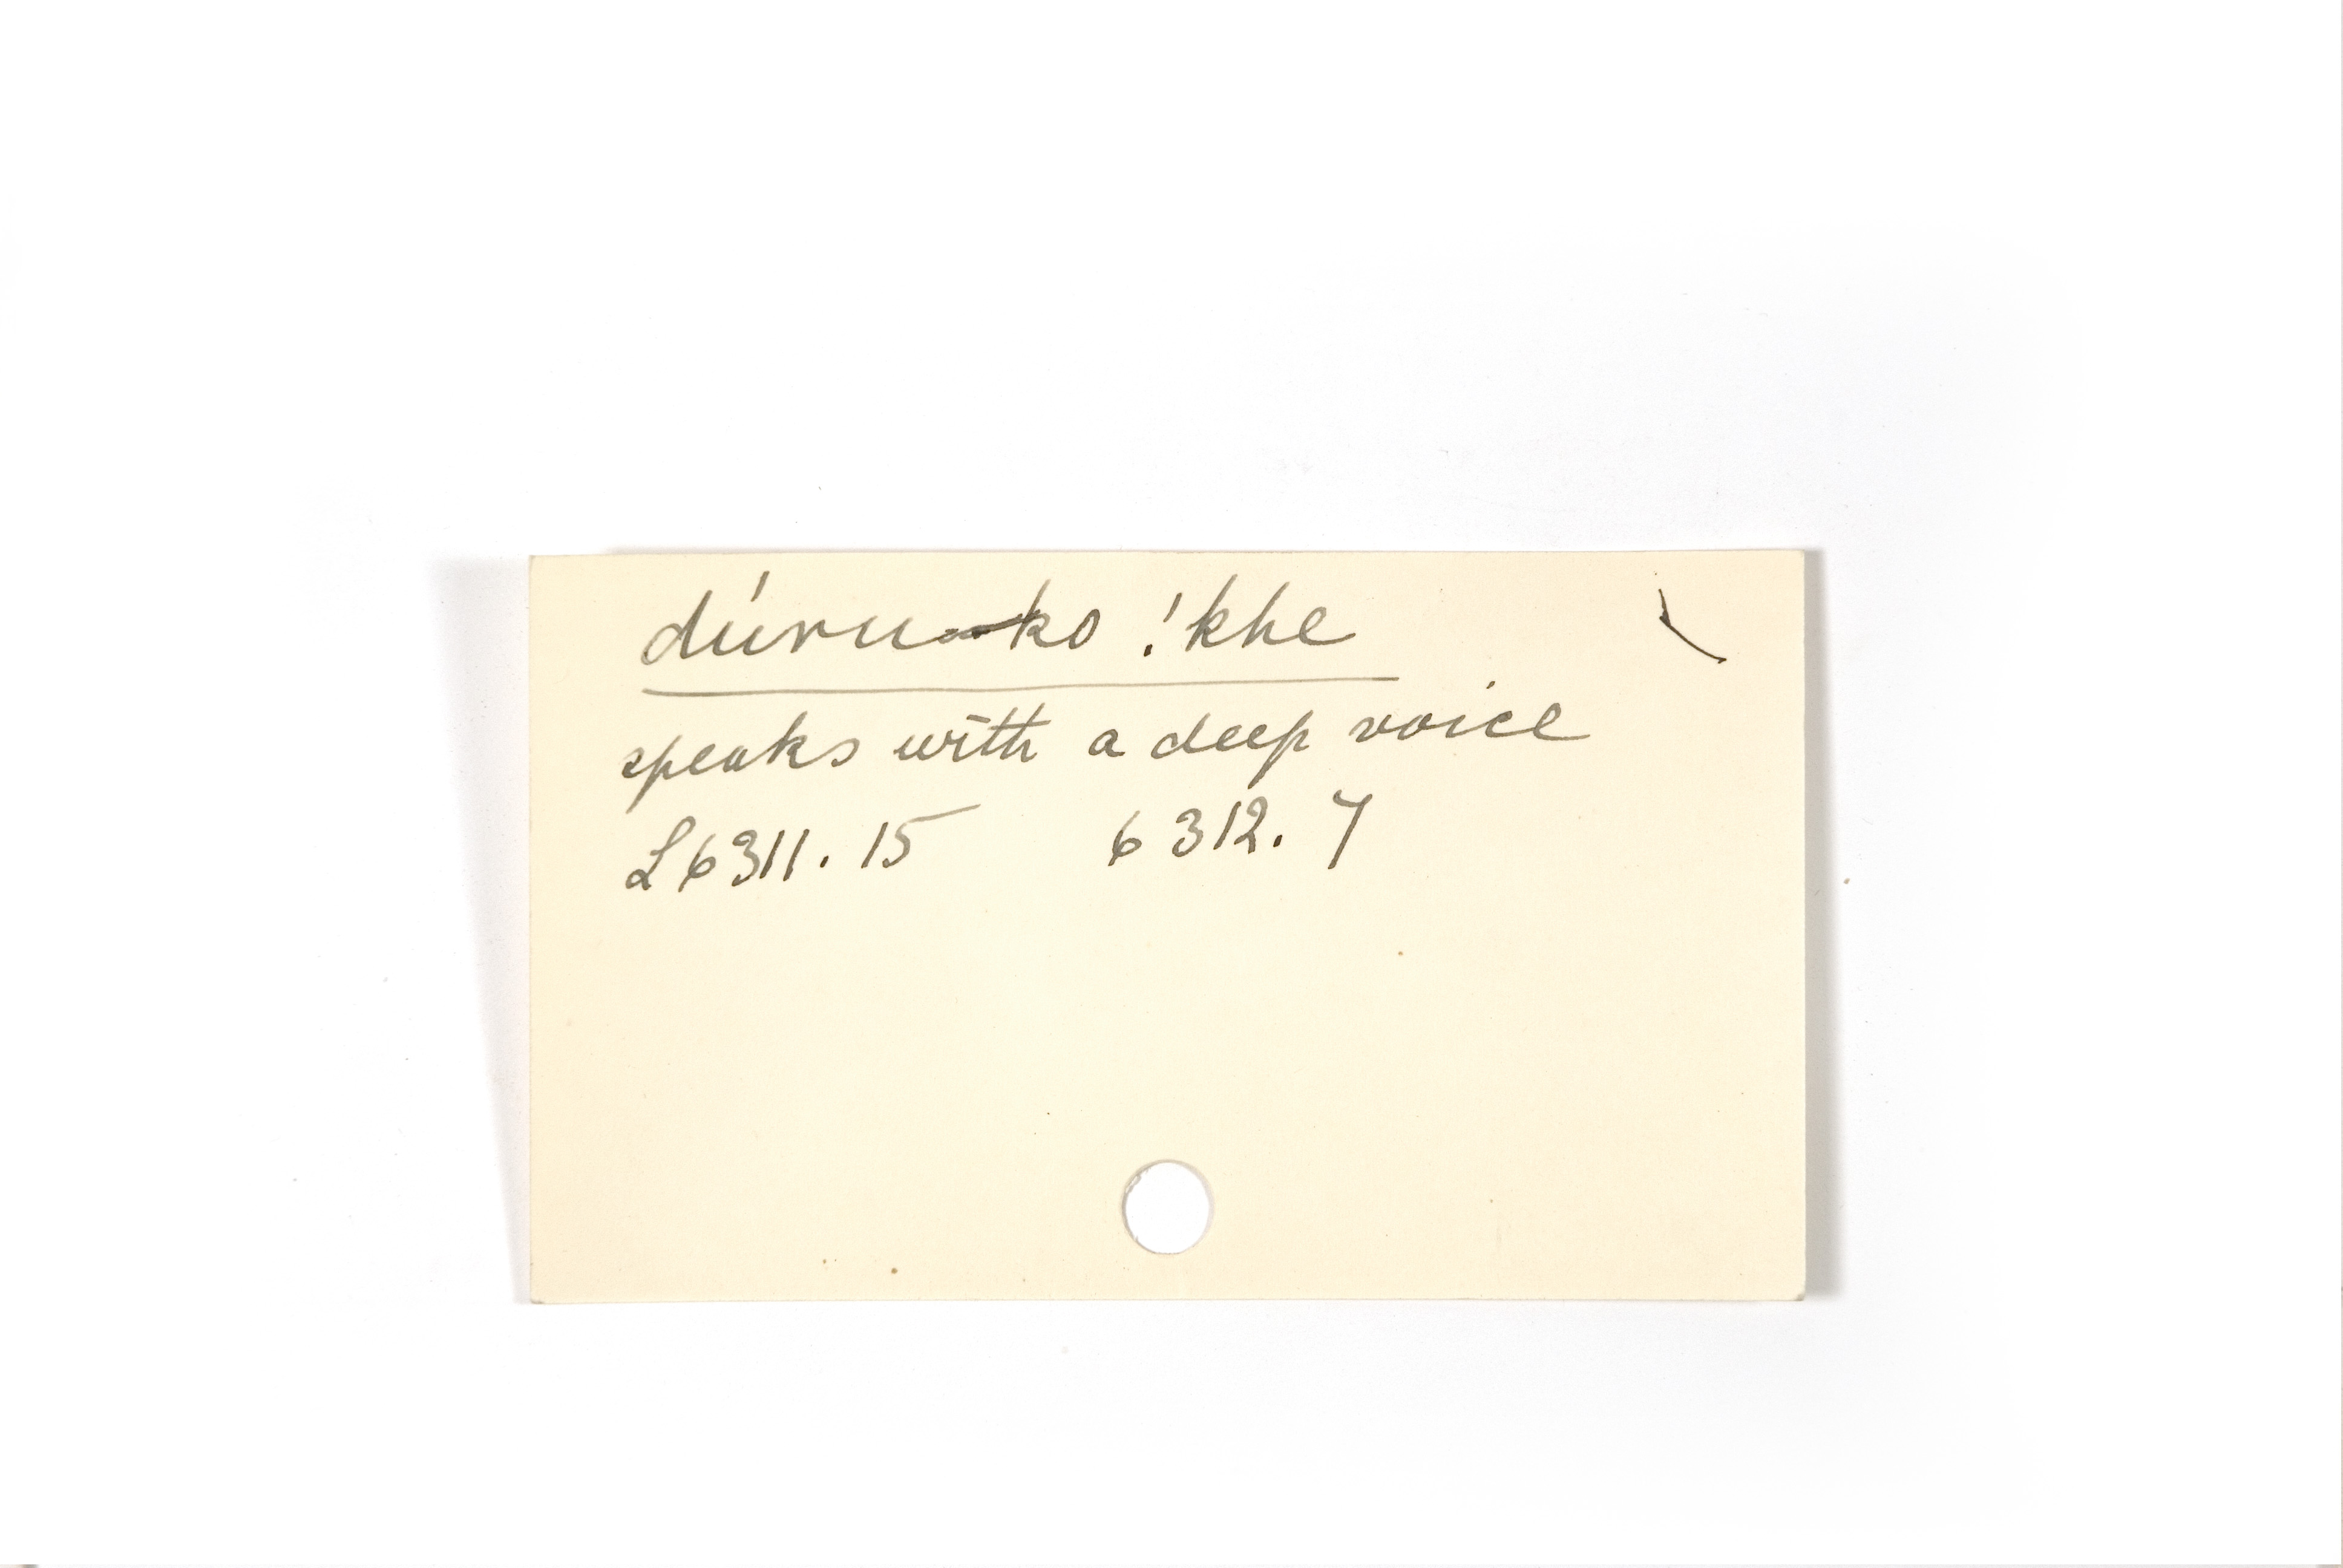 dúru-ko !khe
speaks with a deep voice
L6311.15 6312.7